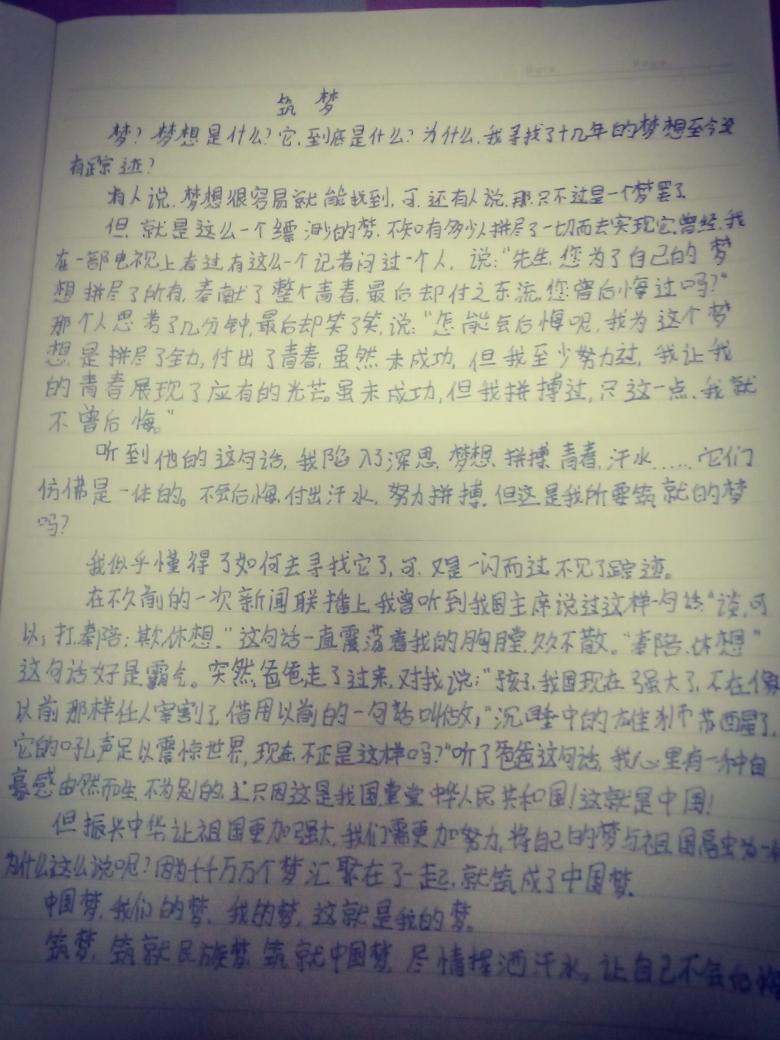 筑 梦
梦？梦想是什么？它，到底是什么？为什么，我寻找了十几年的梦想至今没
有踪迹？
有人说，梦想很容易就能找到，可，还有人说，那只不过是一个梦罢了
但，就是这么一个缥渺的梦，不知有多少人拼尽了一切而去实现它，曾经，我
在一部电视上看过有这么一个记者问过一个人，说：“先生，您为了自己的梦
想拼尽了所有，奉献了整个青春，最后却付之东流，您曾后悔过吗？”
那个人思考了几分钟，最后却笑了笑，说：“怎能会后悔呢，我为这个梦
想是拼尽了全力，付出了青春，虽然未成功，但我至少努力过，我让我
的青春展现了应有的光芒。虽未成功，但我拼搏过，只这一点，我就
不曾后悔。”
听到他的这句话，我陷入了深思，梦想，拼搏，青春，汗水……它们
仿佛是一体的。不会后悔，付出汗水，努力拼搏，但这是我所要筑就的梦
吗？
我似乎懂得了如何去寻找它了，可，又是一闪而过，不见了踪迹。
在不久前的一次新闻联播上，我曾听到我国主席说过这样一句话“谈，可
以；打，奉陪；欺，休想。”这句话一直震荡着我的胸膛，久久不散。“奉陪、休想”
这句话好是霸气。突然，爸爸走了过来，对我说：“孩子，我国现在强大了，不在像
以前那样任人宰割了，借用以前的一句话叫做，“沉睡中的雄狮苏醒了，
它的吼声足以震惊世界，现在，不正是这样吗？”听了爸爸这句话，我心里有一种自
豪感由然而生，不为别的，只因这是我国堂堂中华人民共和国！这就是中国！
但振兴中华，让祖国更加强大，我们需更加努力，将自己的梦与祖国融为一
为什么这么说呢？因为千千万万个梦汇聚在了一起，就筑成了中国梦。
中国梦，我们的梦，我的梦，这就是我的梦。
筑梦，筑就民族梦，筑就中国梦，尽情挥洒汗水，让自己不会后悔